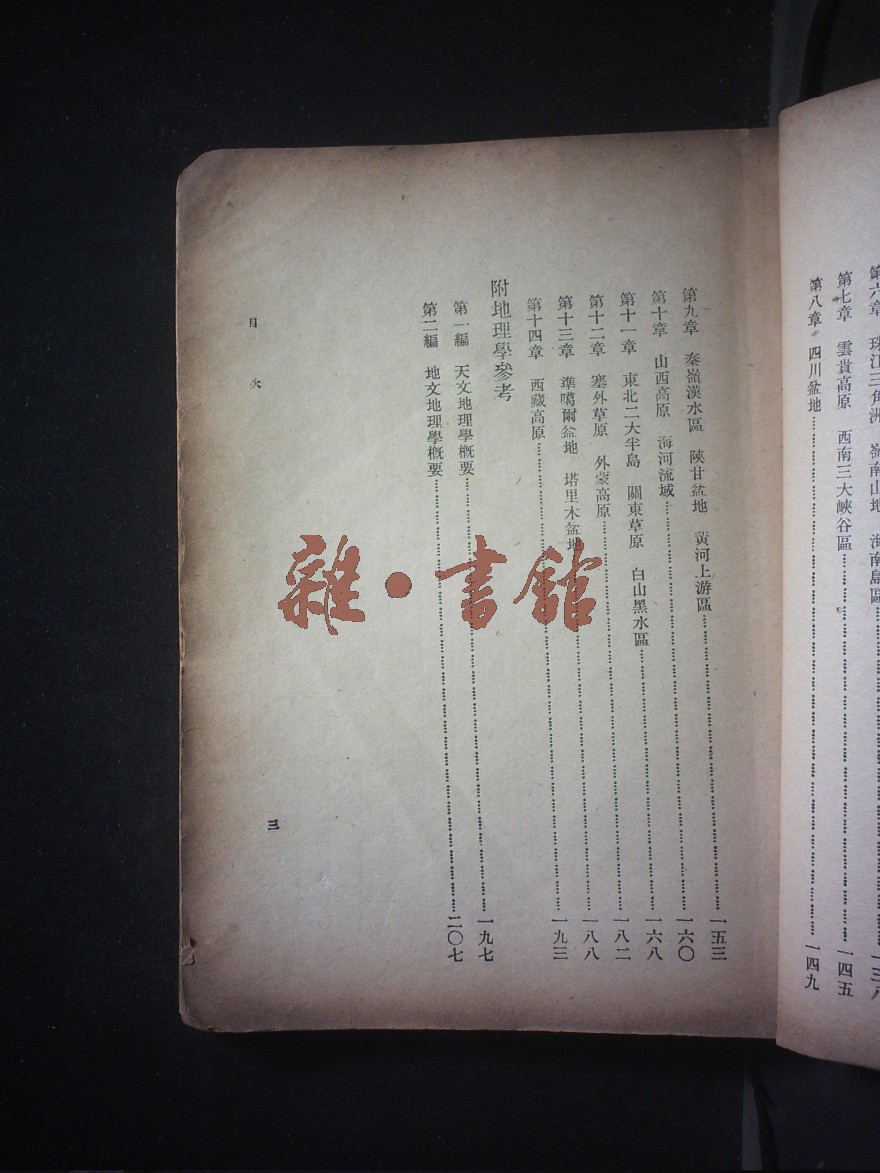 第六章　珠江三角洲　嶺南山地　海南島區……一三八
第七章　雲貴高原　西南三大峽谷區……一四五
第八章　四川盆地……一四九
第九章　秦嶺漢水區　陝甘盆地　黃河上游區……一五三
第十章　山西高原　海河流域……一六〇
第十一章　東北二大半島　關東草原　白山黑水區……一六八
第十二章　塞外草原　外蒙高原……一八二
第十三章　準噶爾盆地　塔里木盆地……一八八
第十四章　西藏高原……一九三
附地理學參考
第一編　天文地理學概要……一九七
第二編　地文地理學概要……二〇七
目次
三
雜·書館